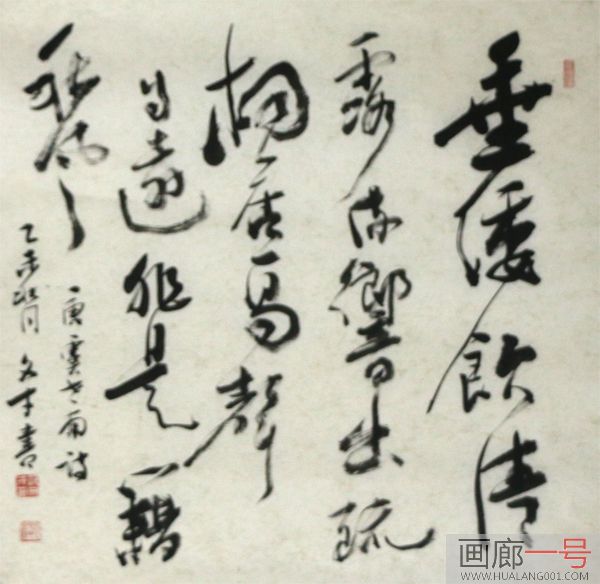 垂緌飲清
露流響出疏
桐居高聲
自遠非是藉
秋風
唐虞世南詩
乙未 月 書
画廊一号
WWW.HUALANG001.COM